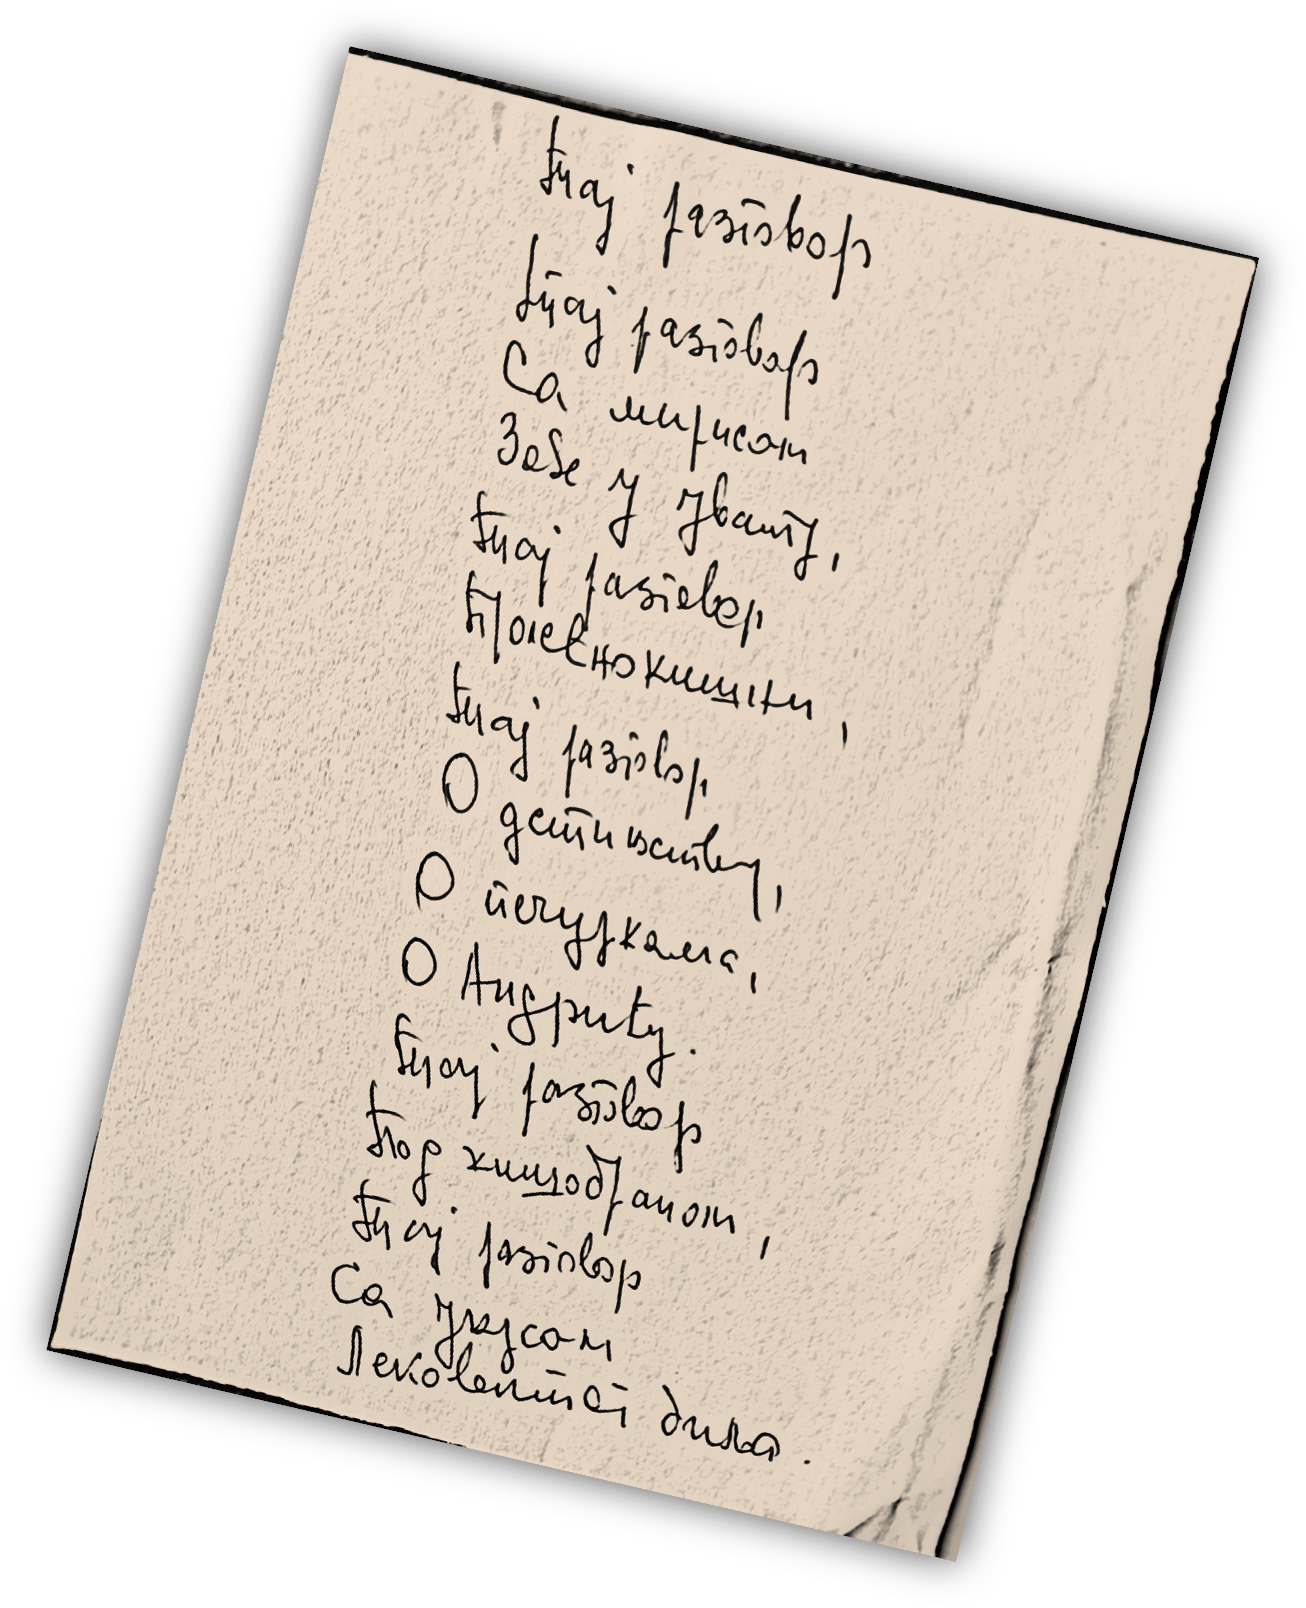 Тај разговор
Тај разговор
Са мирисом
Зове у цвату,
Тај разговор
Пролећнокишни,
Тај разговор
О детињству,
О печуркама,
О Андрићу.
Тај разговор
Под кишобраном,
Тај разговор
Са укусом
Лековитог биља.